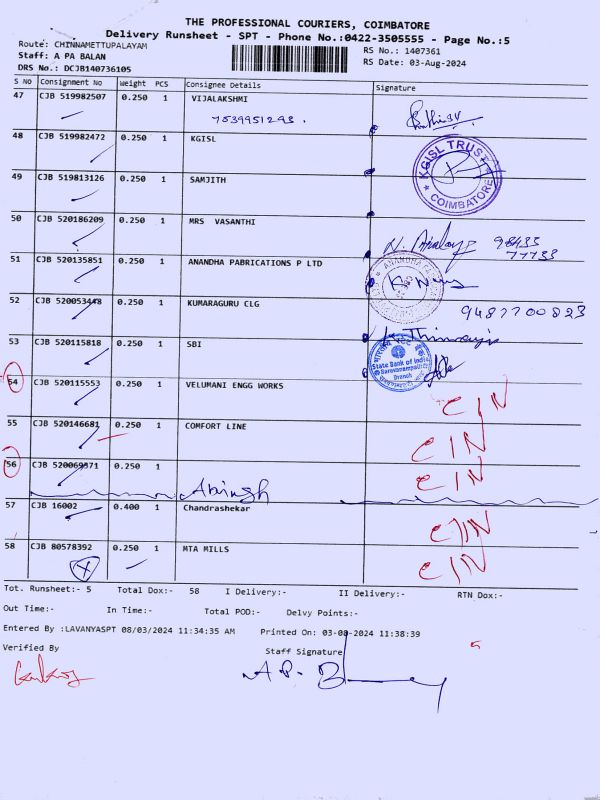 THE PROFESSIONAL COURIERS, COIMBATORE
Delivery Runsheet - SPT - Phone No.:0422-3505555 - Page No.:5
Route: CHINNAMETTUPALAYAM
Staff: A PA BALAN
DRS No.: DCJB140736105
RS No.: 1407361
RS Date: 03-Aug-2024
S NO Consignment No Weight PCS Consignee Details Signature
47 CJB 519982507 0.250 1 VIJALAKSHMI
7539951293.
48 CJB 519982472 0.250 1 KGISL
KGISL TRUST
COIMBATORE
49 CJB 519813126 0.250 1 SAMJITH
50 CJB 520186209 0.250 1 MRS VASANTHI
98433
77733
51 CJB 520135851 0.250 1 ANANDHA PABRICATIONS P LTD
52 CJB 520053448 0.250 1 KUMARAGURU CLG
9487700823
53 CJB 520115818 0.250 1 SBI
State Bank of India
Saravanampatti
Branch
54 CJB 520115553 0.250 1 VELUMANI ENGG WORKS
CIN
55 CJB 520146681 0.250 1 COMFORT LINE
CIN
56 CJB 520069371 0.250 1
CIN
Abinesh
57 CJB 16002 0.400 1 Chandrashekar
CIN
58 CJB 80578392 0.250 1 MTA MILLS
CIN
Tot. Runsheet:- 5 Total Dox:- 58 I Delivery:- II Delivery:- RTN Dox:-
Out Time:- In Time:- Total POD:- Delvy Points:-
Entered By :LAVANYASPT 08/03/2024 11:34:35 AM Printed On: 03-08-2024 11:38:39
Verified By Staff Signature